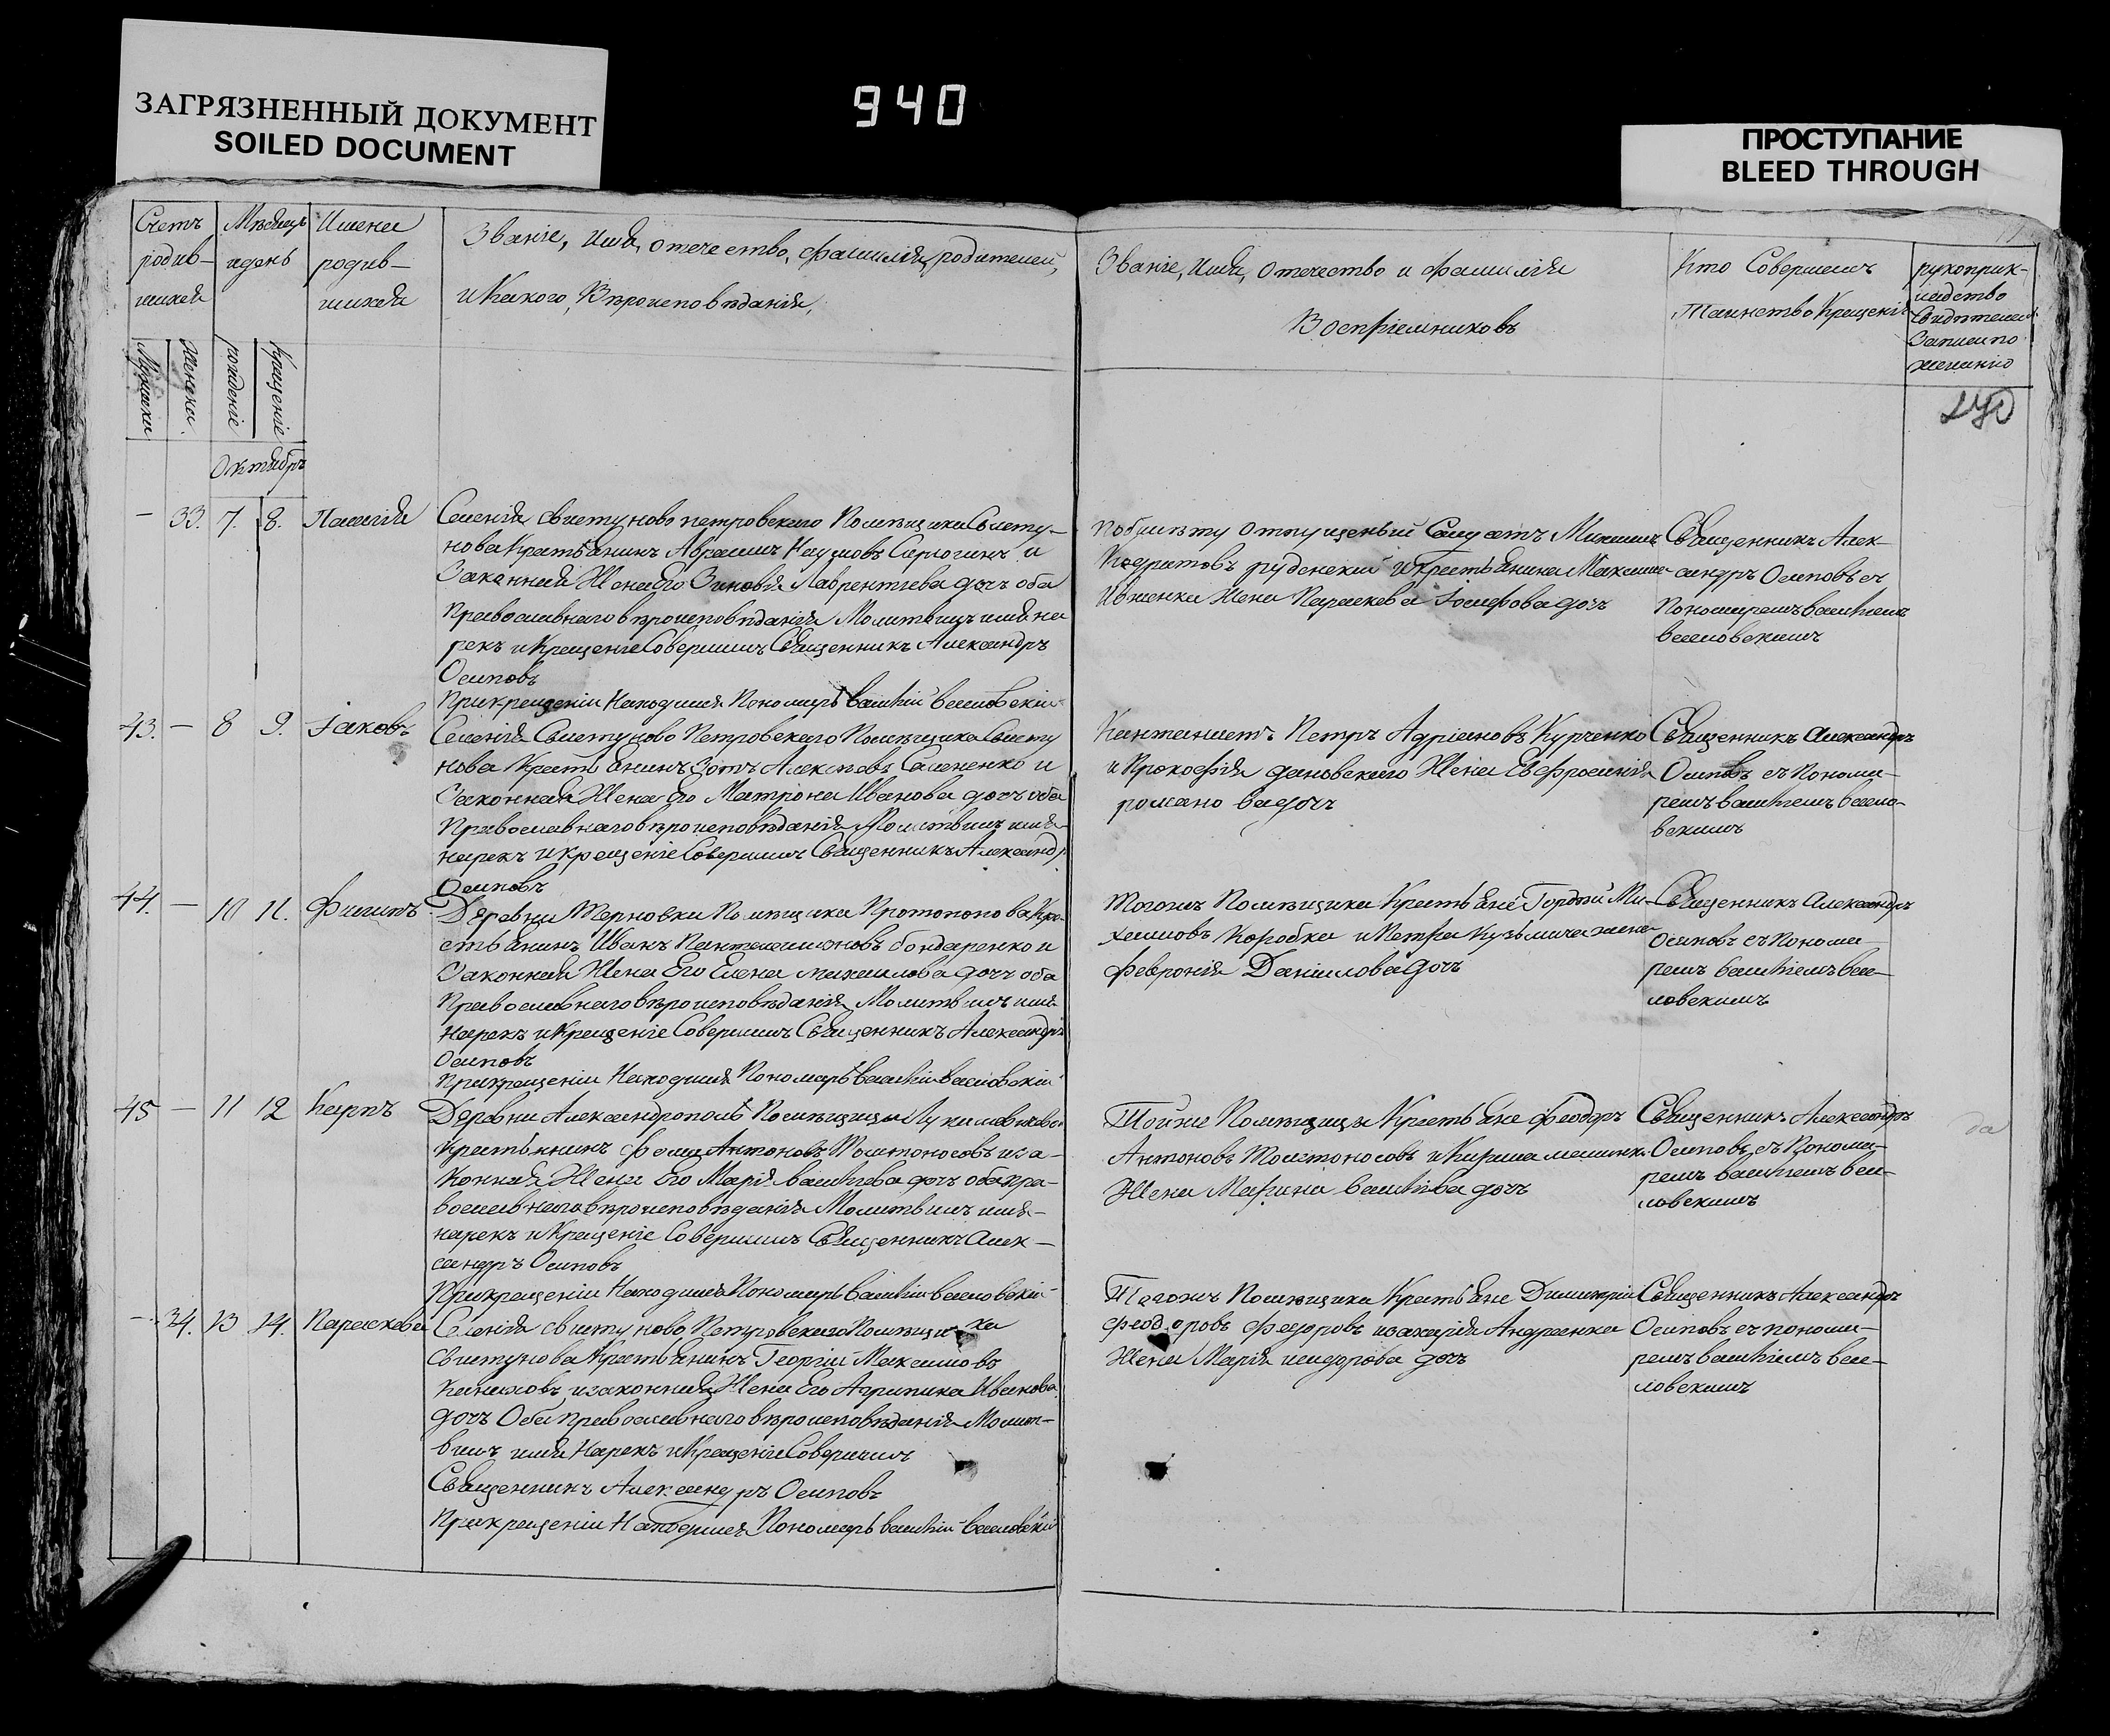 ЗАГРЯЗНЕННЫЙ ДОКУМЕНТ
SOILED DOCUMENT
940
ПРОСТУПАНИЕ
BLEED THROUGH
Счетъ
родив-
шихся
Мѣсяцъ
и день
Имена
родив-
шихся
Званіе, Имя, отечество, фамилія, родителей,
и Какого, Вѣроисповѣданія,
Мужска
Женска.
рожденіе
Крещеніе
Октябрь
Званіе, Имя, отечество и фамилія
Воспріемниковъ
Кто Совершилъ
Таинство Крещенія
рукоприк-
ладство
Свидѣтелей
Записи по
желанію
— 33. 7. 8. Палагія
Селенія Свистуново петровскаго Помѣщика Свисту-
нова Крестьянинъ Аврамъ Наумовъ и
Законная Жена Его Зиновія Лаврентіева дочь оба
Православнаго вѣроисповѣданія Молитвилъ имя на
рекъ и Крещеніе Совершилъ Священникъ Александръ
Осиповъ
При крещеніи Находился Пономарь Василій Веселовскій
отпущеный Солдатъ
Кодратовъ руденскій и крестьянина Максима
Ивженка Жена Параскева Іосифова дочь
Священникъ Алек-
сандръ Осиповъ съ
Пономаремъ Василіемъ
Веселовскимъ
43. — 8 9. Іаковъ
Селенія Свистуново Петровскаго Помѣщика Свисту
нова Крестьянинъ Зотъ Алексѣевъ Семененко и
Законная Жена Его Матрона Иванова дочь оба
Православнаго вѣроисповѣданія Молитвилъ имя
нарекъ и крещеніе Совершилъ Священникъ Александръ
Осиповъ
Кантанистъ Петръ Адріановъ Курченко
и Прокофія дановскаго Жена Евфросинія
романова дочь
Священникъ Александръ
Осиповъ съ Понома-
ремъ Василіемъ Весело-
вскимъ
44. — 10 11. Филипъ
Деревни Терновки Помѣщика Протопопова Кре-
стьянинъ Иванъ Пантелеимоновъ бондаренко и
Законная Жена Его Елена михаилова дочь оба
Православнаго вѣроисповѣданія Молитвилъ имя
Нарекъ и Крещеніе Совершилъ Священникъ Александръ
Осиповъ
При крещеніи Находился Пономарь Василій Веселовскій
Тогожъ Помѣщика Крестьяне Гордѣй Ми-
хаиловъ Коробка и Петра Кузьмича жена
Февронія Даніилова Дочь
Священникъ Александръ
Осиповъ съ Понома-
ремъ Василіемъ Весе-
ловскимъ
45 — 11 12 Карпъ
Деревни Александрополь Помѣщицы
Крестьянинъ Фома Антоновъ Толстоносовъ и за-
Конная Жена Его Марія Василіева дочь оба пра-
вославнаго вѣроисповѣданія Молитвилъ имя-
нарекъ и Крещеніе Совершилъ Священникъ Алек-
сандръ Осиповъ
При крещеніи Находился Пономарь Василій Веселовскій
Тойже Помѣщицы Крестьяне Феодоръ
Антоновъ Толстоносовъ и
Жена Марина Василіева дочь
Священникъ Александръ
Осиповъ съ Понома-
ремъ Василіемъ Весе-
ловскимъ
— 34. 13 14. Параскева
Селенія Свистуново Петровскаго Помѣщика
Свистунова Крестьянинъ Георгій Максимовъ
Канаховъ и законная Жена Его Агрипина Иванова
дочь Оба православнаго вѣроисповѣданія Молит-
вилъ имя Нарекъ и Крещеніе Совершилъ
Священникъ Александръ Осиповъ
При крещеніи Находился Пономарь Василій Веселовскій
Тогожъ Помѣщика Крестьяне Димитрій
Феодоровъ Федоровъ и захарія Андреенка
Жена Марія исидорова дочь
Священникъ Александръ
Осиповъ съ понома-
ремъ Василіемъ Весе-
ловскимъ